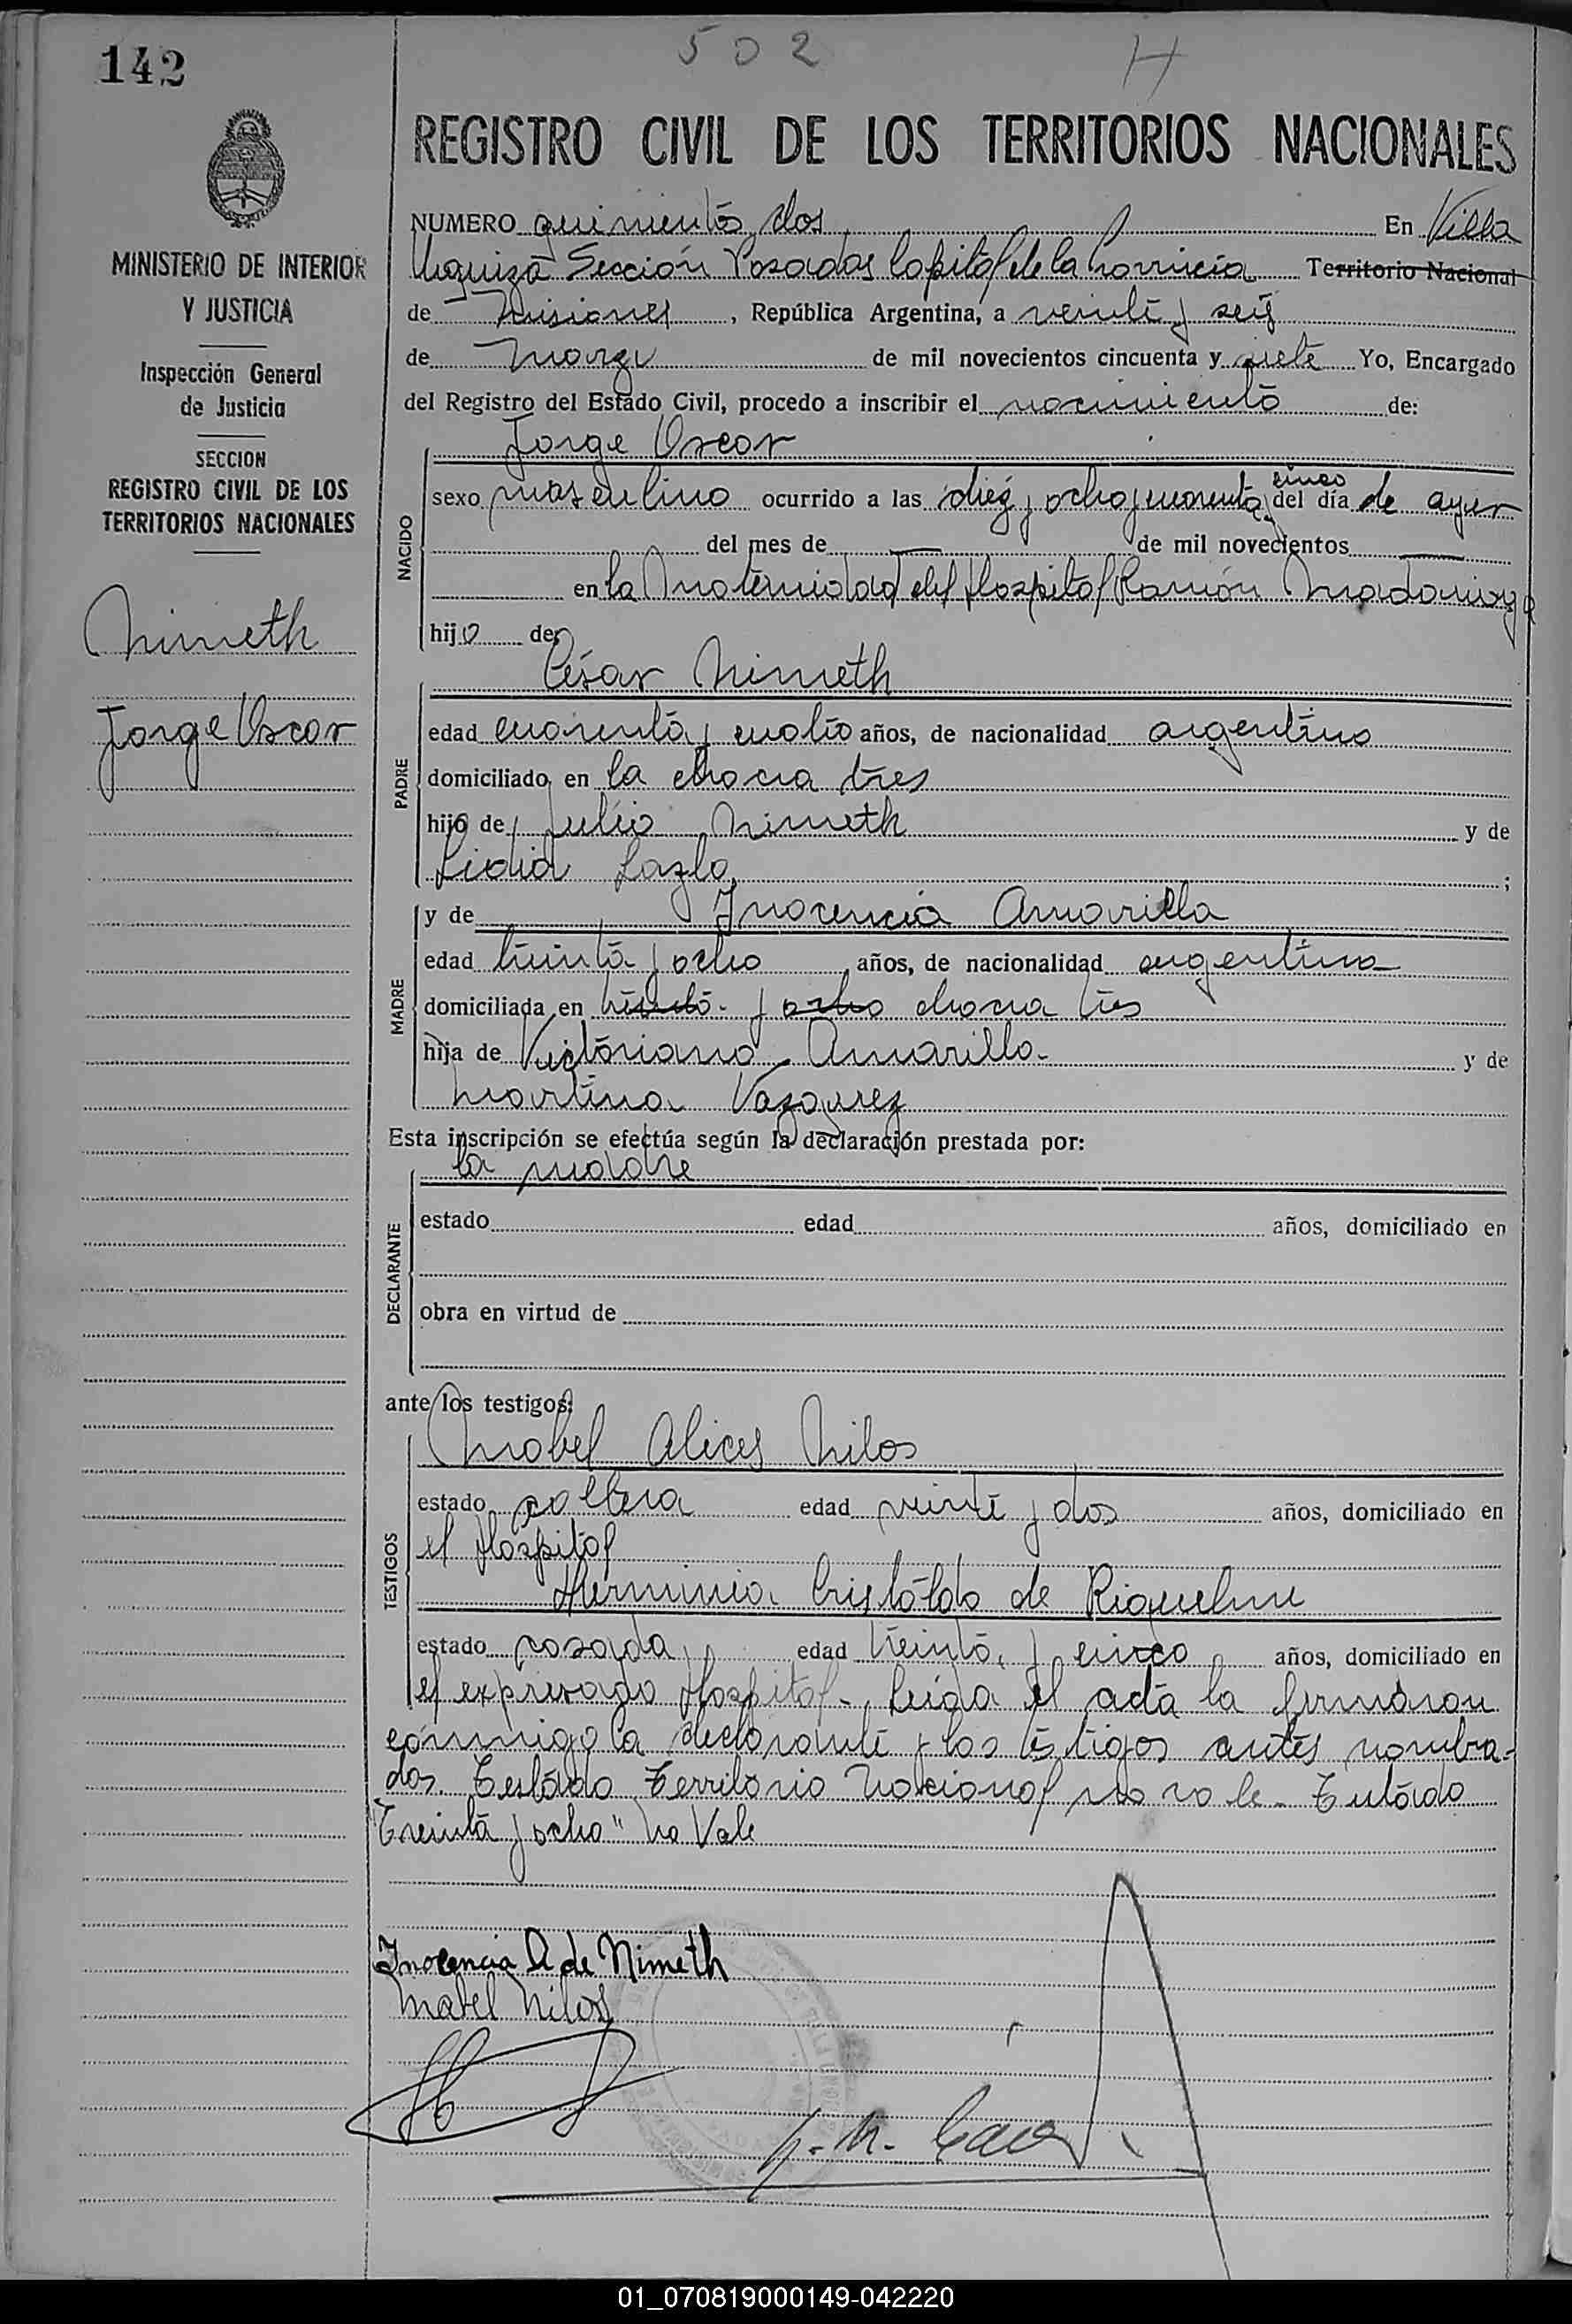 142
502
H
REGISTRO CIVIL DE LOS TERRITORIOS NACIONALES
MINISTERIO DE INTERIOR
Y JUSTICIA
Inspección General
de Justicia
SECCION
REGISTRO CIVIL DE LOS
TERRITORIOS NACIONALES
Nimeth
Jorge Oscar
NUMERO quinientos dos En Villa
Urquiza Sección Posadas Capital de la Provincia Territorio Nacional
de Misiones, República Argentina, a veinte y seis
de marzo de mil novecientos cincuenta y siete Yo, Encargado
del Registro del Estado Civil, procedo a inscribir el nacimiento de:
Jorge Oscar
NACIDO
cinco
sexo masculino ocurrido a las diez y ocho y cuarenta y del día de ayer
del mes de — de mil novecientos —
en la Maternidad del Hospital Ramón Madariaga
hijo de
César Nimeth
PADRE
edad cuarenta y cuatro años, de nacionalidad argentino
domiciliado en la chacra tres
hijo de Julio Nimeth y de
Lidia Lazlo ;
MADRE
y de Inocencia Amarilla
edad treinta y ocho años, de nacionalidad argentina
domiciliada en treinta y ocho chacra tres
hija de Victoriano Amarilla y de
Martina Vazquez
Esta inscripción se efectúa según la declaración prestada por:
la madre
DECLARANTE
estado edad años, domiciliado en
obra en virtud de
ante los testigos:
Mabel Alices Nilos
TESTIGOS
estado soltera edad veinte y dos años, domiciliado en
el Hospital
Herminia Cristaldo de Riquelme
estado casada edad treinta y cinco años, domiciliado en
el expresado Hospital - Leida el acta la firmaron
conmigo la declarante y los testigos antes nombra-
dos. Testado Territorio Nacional no vale - Testado
"Treinta y ocho" No Vale
Inocencia A de Nimeth
Mabel Nilos
01_070819000149-042220